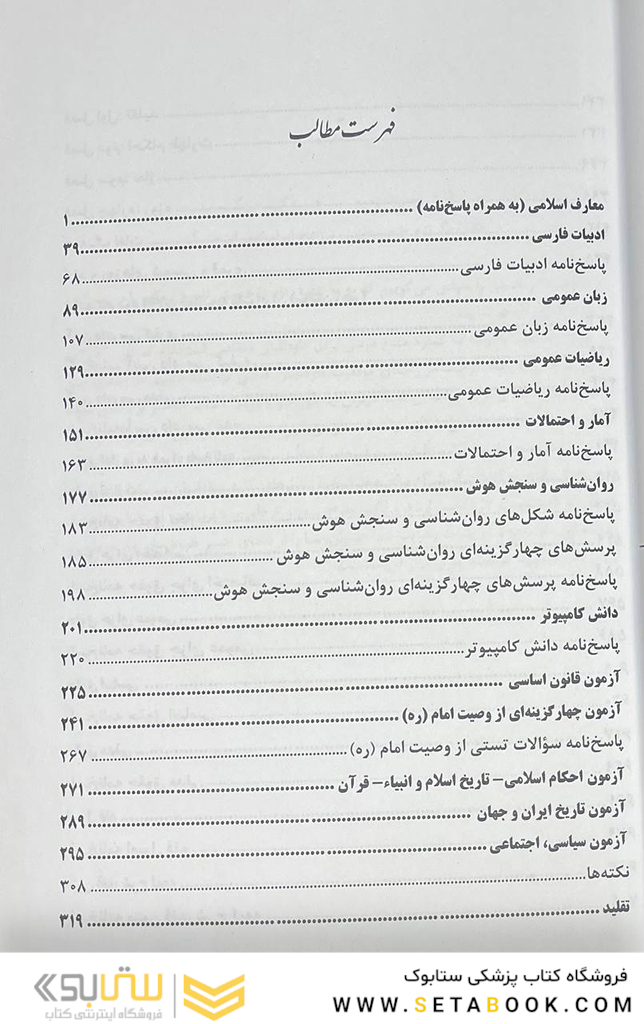 فهرست مطالب
معارف اسلامی (به همراه پاسخ‌نامه) ........ ۱
ادبیات فارسی ........ ۳۹
پاسخ‌نامه ادبیات فارسی ........ ۶۸
زبان عمومی ........ ۸۹
پاسخ‌نامه زبان عمومی ........ ۱۰۷
ریاضیات عمومی ........ ۱۲۹
پاسخ‌نامه ریاضیات عمومی ........ ۱۴۰
آمار و احتمالات ........ ۱۵۱
پاسخ‌نامه آمار و احتمالات ........ ۱۶۳
روان‌شناسی و سنجش هوش ........ ۱۷۷
پاسخ‌نامه شکل‌های روان‌شناسی و سنجش هوش ........ ۱۸۳
پرسش‌های چهارگزینه‌ای روان‌شناسی و سنجش هوش ........ ۱۸۵
پاسخ‌نامه پرسش‌های چهارگزینه‌ای روان‌شناسی و سنجش هوش ........ ۱۹۸
دانش کامپیوتر ........ ۲۰۱
پاسخ‌نامه دانش کامپیوتر ........ ۲۲۰
آزمون قانون اساسی ........ ۲۲۵
آزمون چهارگزینه‌ای از وصیت امام (ره) ........ ۲۴۱
پاسخ‌نامه سؤالات تستی از وصیت امام (ره) ........ ۲۶۷
آزمون احکام اسلامی- تاریخ اسلام و انبیاء- قرآن ........ ۲۷۱
آزمون تاریخ ایران و جهان ........ ۲۸۹
آزمون سیاسی، اجتماعی ........ ۲۹۵
نکته‌ها ........ ۳۰۸
تقلید ........ ۳۱۹
فروشگاه کتاب پزشکی ستابوک
WWW.SETABOOK.COM
ستابوک
فروشگاه اینترنتی کتاب